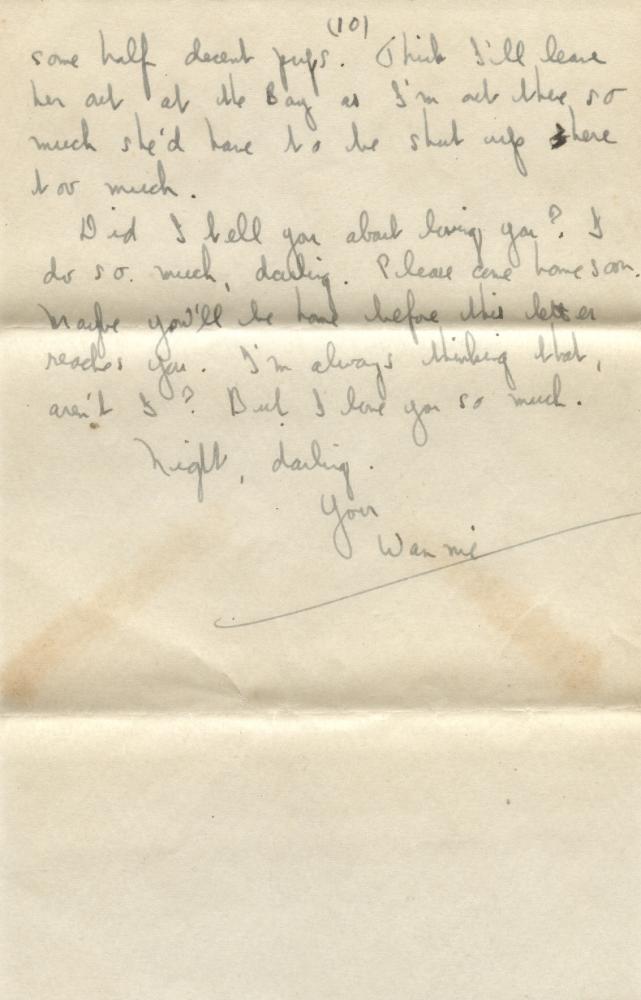 (10)
some half decent pups. Think I'll leave
her out at the Bay as I'm out there so
much she'd have to be shut up here
too much.
Did I tell you about loving you? I
do so much, darling. Please come home soon.
Maybe you'll be home before this letter
reaches you. I'm always thinking that,
aren't I? But I love you so much.
Night, darling.
Your
Wannie